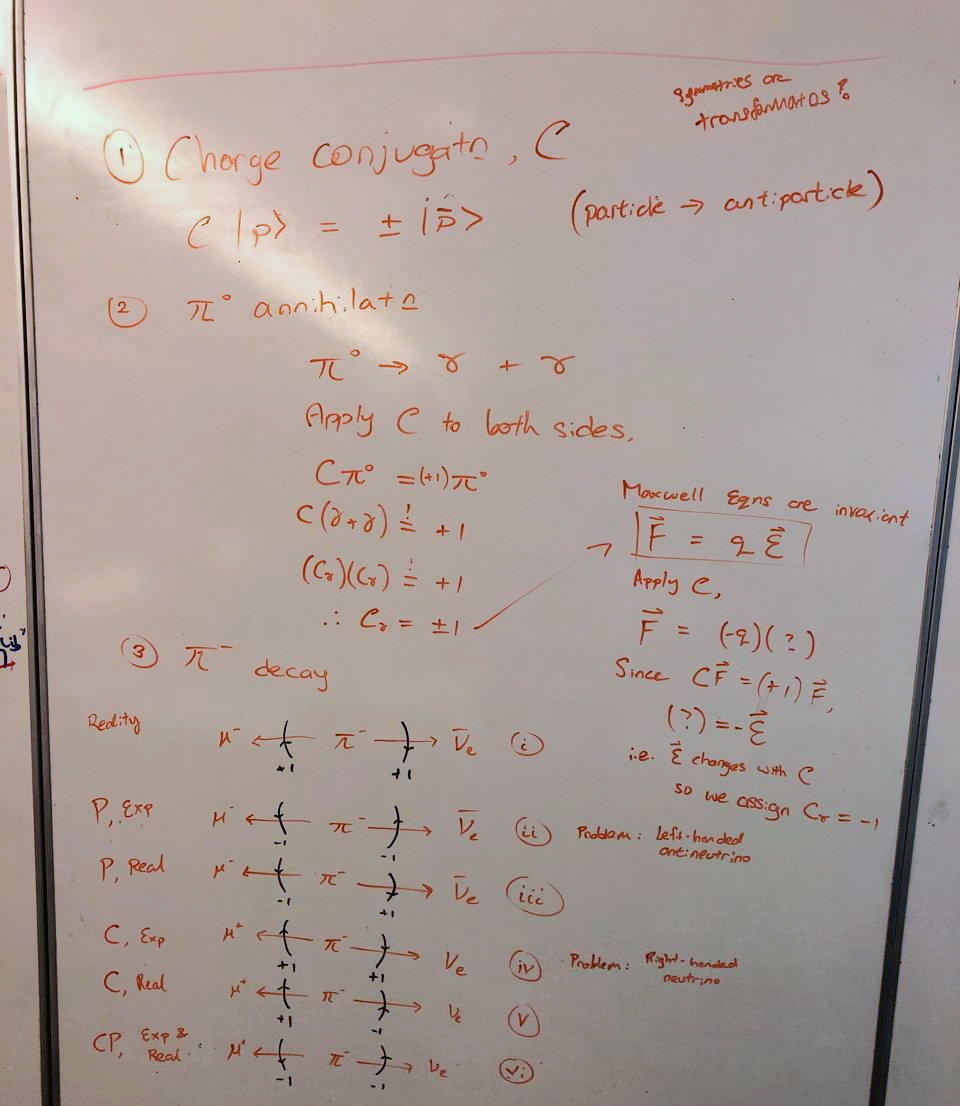 Symmetries are
transformatns?
① Charge conjugatn, C
C |p> = ± |p̄> (particle → antiparticle)
② π° annihilatn
π° → γ + γ
Apply C to both sides,
Cπ° = (+1)π°
C(γ+γ) ≐ +1
(Cγ)(Cγ) ≐ +1
∴ Cγ = ±1
Maxwell Eqns are invariant
F⃗ = q ℰ⃗
Apply C,
F⃗ = (-q)(?)
Since CF⃗ = (+1) F⃗,
(?) = -ℰ⃗
i.e. ℰ⃗ changes with C
so we assign Cγ = -1
③ π⁻ decay
Reality μ⁻ ← π⁻ → ν̄e (i)
+1 +1
P, Exp μ⁻ ← π⁻ → ν̄e (ii) Problem: Left-handed
antineutrino
-1 -1
P, Real μ⁻ ← π⁻ → ν̄e (iii)
-1 +1
C, Exp μ⁺ ← π⁻ → νe (iv) Problem: Right-handed
neutrino
+1 +1
C, Real μ⁺ ← π⁻ → νe (v)
+1 -1
CP, Exp & Real μ⁺ ← π⁻ → νe (vi)
-1 -1